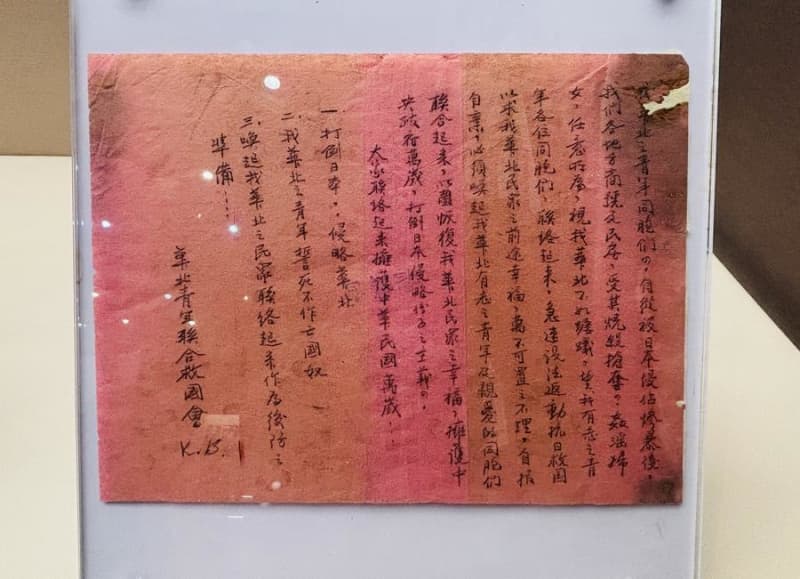 我華北之青年同胞們 自從被日本侵佔慘暴後,
我們各地方商號及民房,受其燒殺搶奪。姦淫婦
女,任意所為,視我華北人如螻蟻,望我有志之青
年各位同胞們,聯絡起來,急速設法返動抗日救國
以求我華北民眾之前途幸福,萬不可置之不理,自
自棄,必須喚起我華北有志之青年及親愛的同胞們
聯合起來,以圖恢復我華北民眾之幸福,擁護中
央政府萬歲,打倒日本侵略份子之主義。
大家聯絡起來擁護中華民國萬歲!!
一.打倒日本。侵略華北
二.我華北之青年誓死不作亡國奴
三.喚起我華北之民眾聯絡起來作為後防之
準備...
華北青年聯合救國會
K.B.